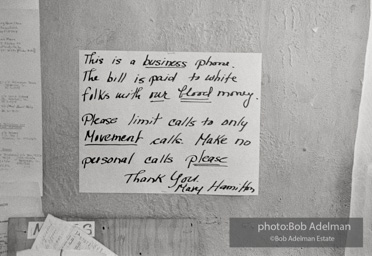 This is a business phone.
The bill is paid to white
folks with our blood money.
Please limit calls to only
Movement calls. Make no
personal calls please
Thank You.
Mary Hamilton
photo:Bob Adelman
©Bob Adelman Estate